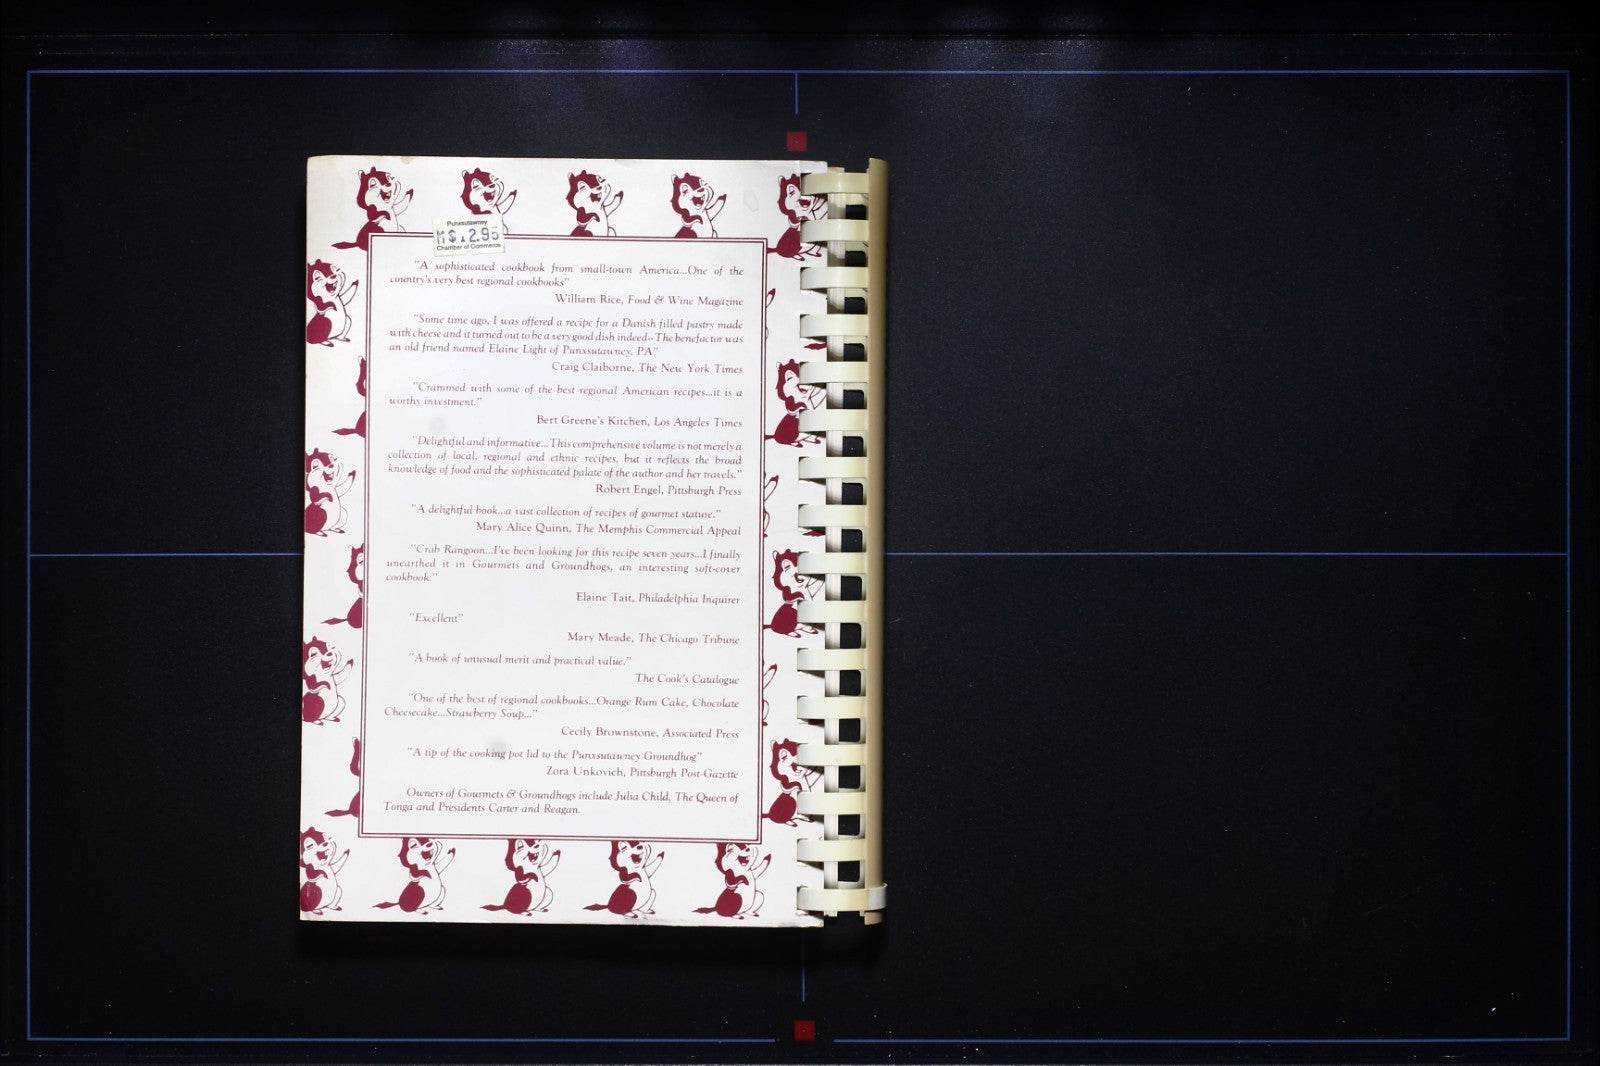 Punxsutawney
M $12.95
Chamber of Commerce
"A sophisticated cookbook from small-town America...One of the
country's very best regional cookbooks"
William Rice, Food & Wine Magazine
"Some time ago, I was offered a recipe for a Danish filled pastry made
with cheese and it turned out to be a very good dish indeed--The benefactor was
an old friend named Elaine Light of Punxsutawney, PA"
Craig Claiborne, The New York Times
"Crammed with some of the best regional American recipes...it is a
worthy investment."
Bert Greene's Kitchen, Los Angeles Times
"Delightful and informative...This comprehensive volume is not merely a
collection of local, regional and ethnic recipes, but it reflects the broad
knowledge of food and the sophisticated palate of the author and her travels."
Robert Engel, Pittsburgh Press
"A delightful book...a vast collection of recipes of gourmet stature."
Mary Alice Quinn, The Memphis Commercial Appeal
"Crab Rangoon...I've been looking for this recipe seven years...I finally
unearthed it in Gourmets and Groundhogs, an interesting soft-cover
cookbook."
Elaine Tait, Philadelphia Inquirer
"Excellent"
Mary Meade, The Chicago Tribune
"A book of unusual merit and practical value."
The Cook's Catalogue
"One of the best of regional cookbooks...Orange Rum Cake, Chocolate
Cheesecake...Strawberry Soup..."
Cecily Brownstone, Associated Press
"A tip of the cooking pot lid to the Punxsutawney Groundhog"
Zora Unkovich, Pittsburgh Post-Gazette
Owners of Gourmets & Groundhogs include Julia Child, The Queen of
Tonga and Presidents Carter and Reagan.